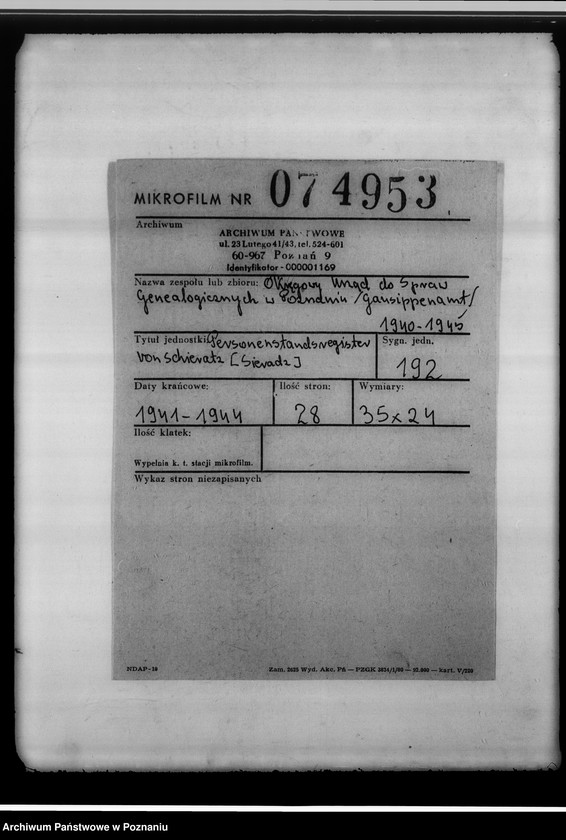 MIKROFILM NR 074953
Archiwum
ARCHIWUM PAŃSTWOWE
ul. 23 Lutego 41/43, tel. 524-601
60-967 Poznań 9
Identyfikator - 000001169
Nazwa zespołu lub zbioru: Okręgowy Urząd do Spraw
Genealogicznych w Poznaniu /Gausippenamt/
1940-1945
Tytuł jednostki: Personenstandsregister
von Schieratz [Sieradz]
Sygn. jedn.
192
Daty krańcowe:
1941-1944
Ilość stron:
28
Wymiary:
35x24
Ilość klatek:
Wypełnia k. t. stacji mikrofilm.
Wykaz stron niezapisanych
NDAP-10
Zam. 2625 Wyd. Akc. PA — PZGK — kart. V/220
Archiwum Państwowe w Poznaniu